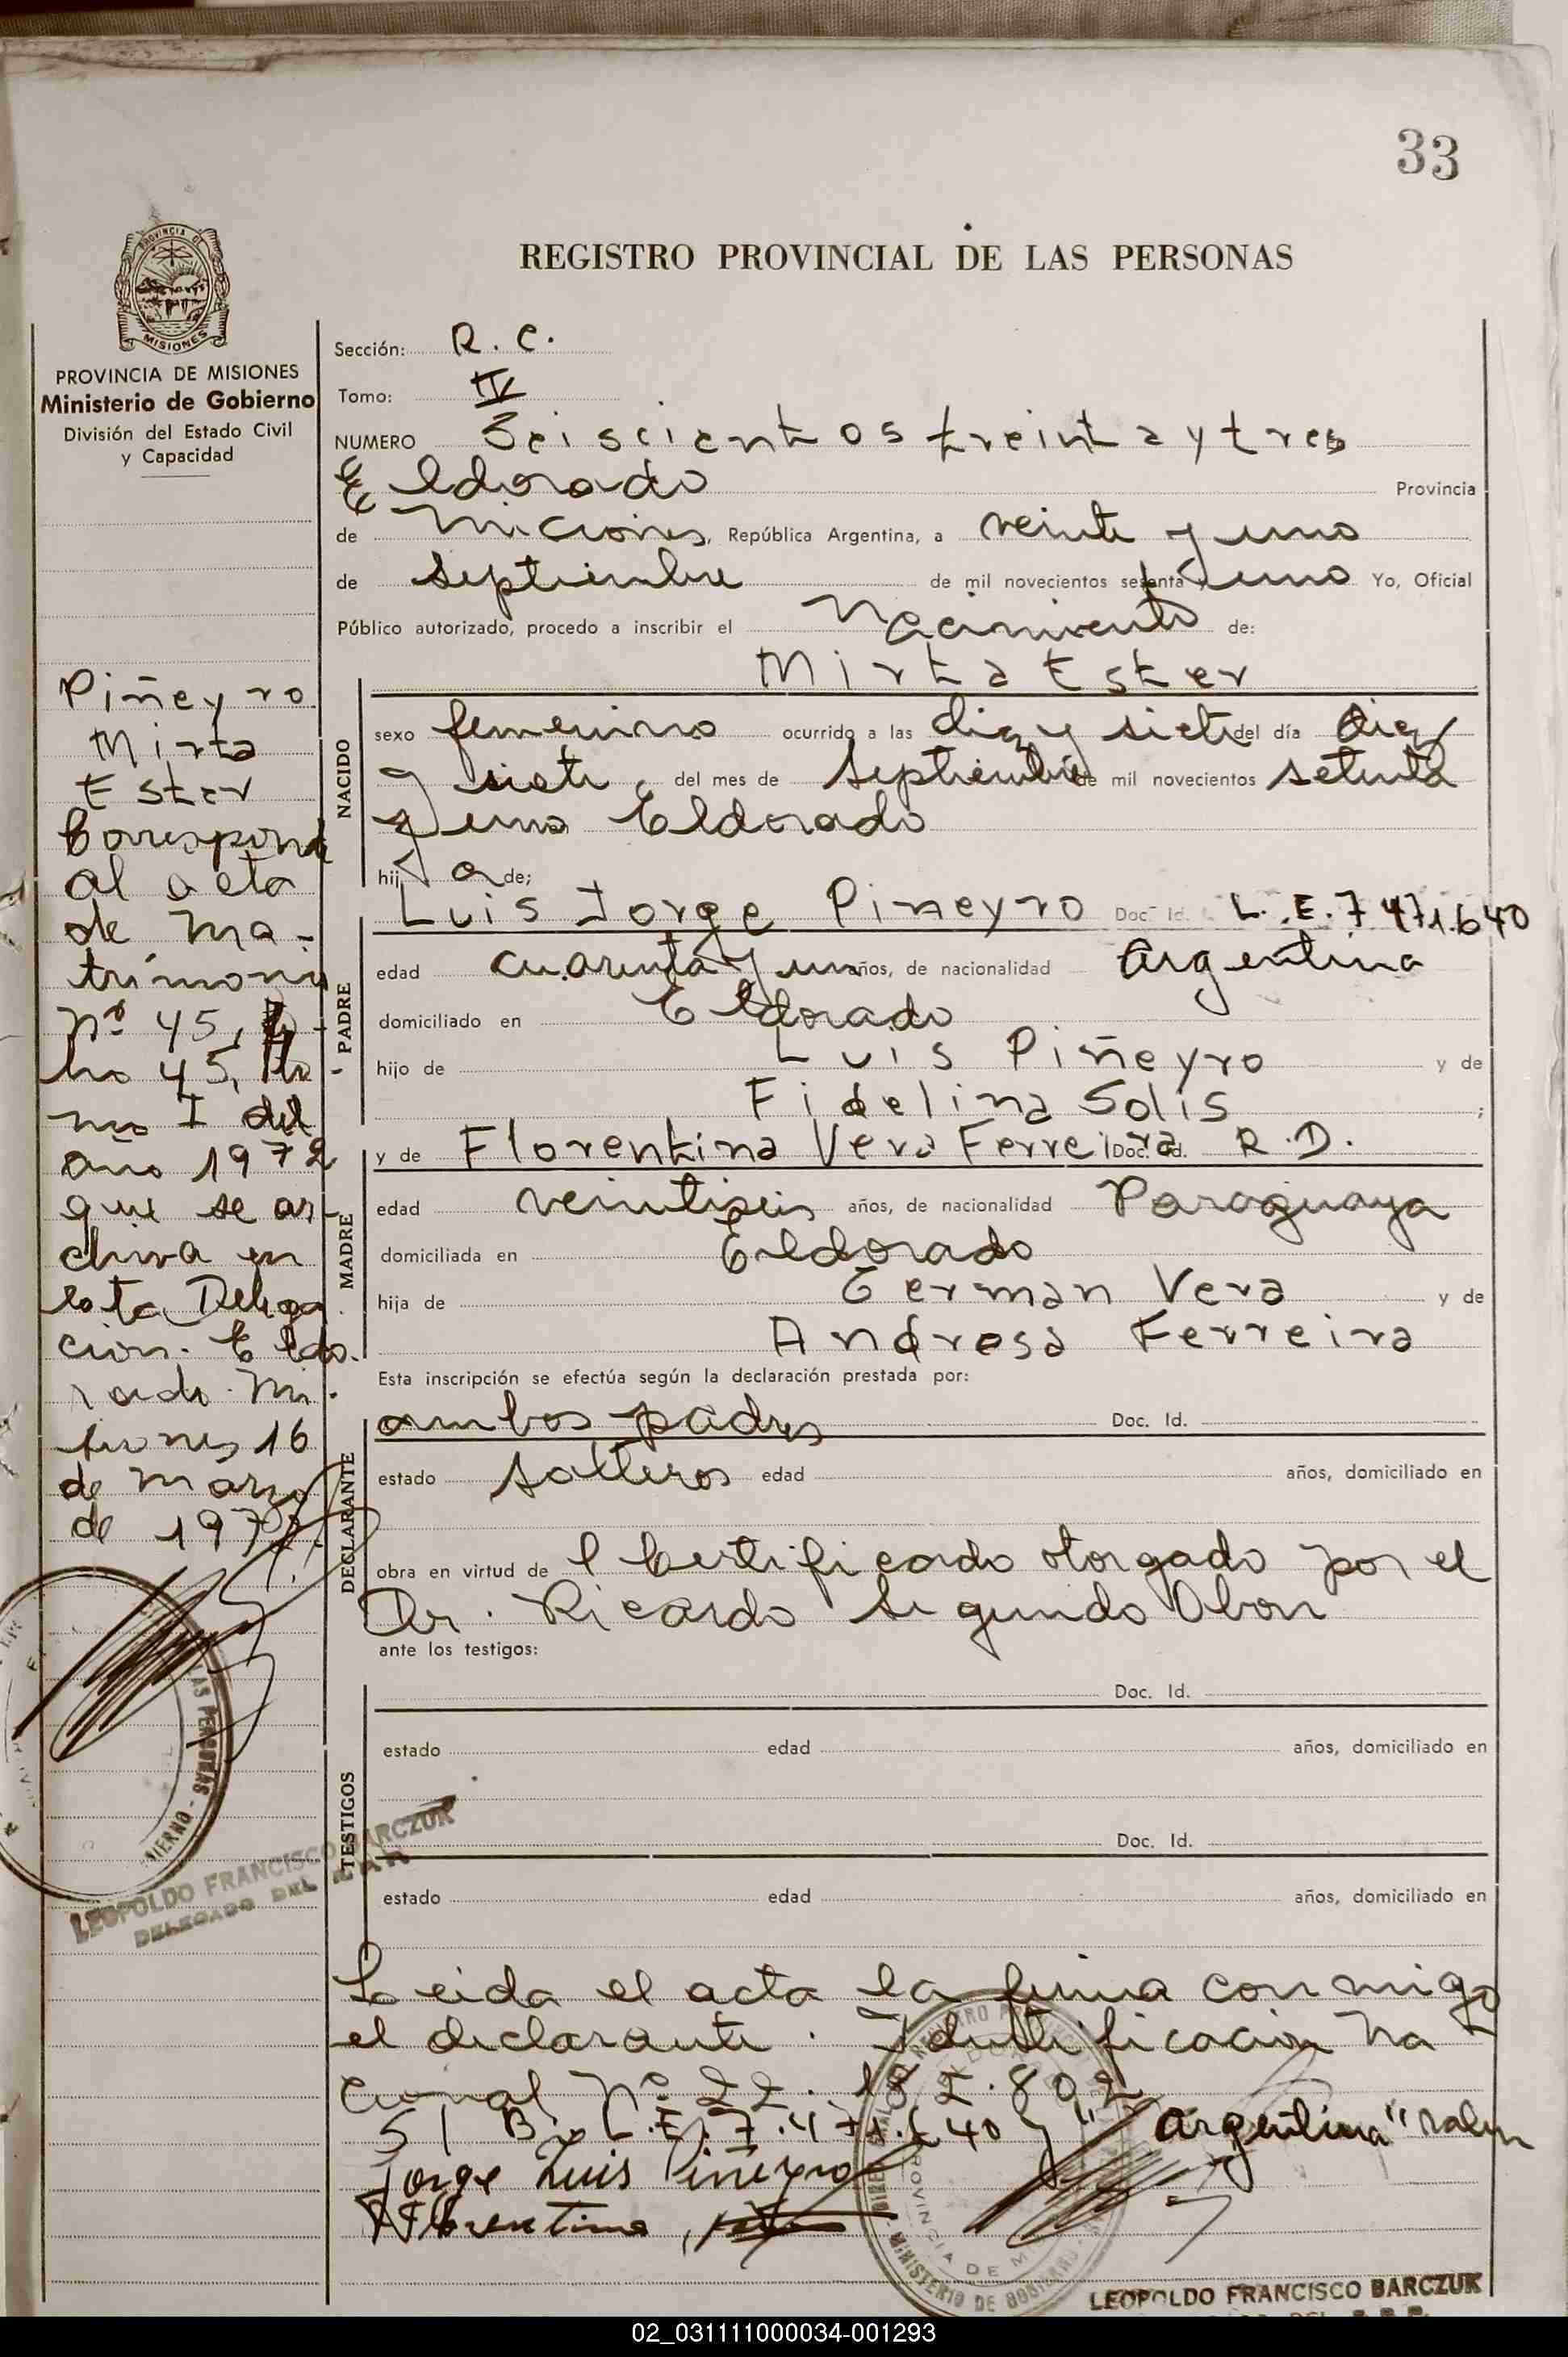 33
REGISTRO PROVINCIAL DE LAS PERSONAS
PROVINCIA DE
MISIONES
PROVINCIA DE MISIONES
Ministerio de Gobierno
División del Estado Civil
y Capacidad
Piñeyro
Mirta
Ester
Correspond
al acta
de Ma-
trimonio
Nº 45,
lio 45, To-
mo I del
año 1972
que se ar-
chiva en
esta Delega
cion. Eldo.
rado. Mi.
siones 16
de Marzo
de 197
LEOPOLDO FRANCISCO BARCZUK
DELEGADO DEL
Sección: R. C.
Tomo: IV
NUMERO Seiscientos treinta y tres
Eldorado Provincia
de Miciones, República Argentina, a veinte y uno
de septiembre de mil novecientos setenta y uno Yo, Oficial
Público autorizado, procedo a inscribir el Nacimiento de:
Mirta Ester
NACIDO
sexo femenino ocurrido a las diez y siete del día diez
y siete del mes de septiembre de mil novecientos setenta
y uno Eldorado
hija de;
PADRE
Luis Jorge Pineyro Doc. Id. L. E. 7 471.640
edad cuarenta y un años, de nacionalidad argentina
domiciliado en Eldorado
hijo de Luis Piñeyro y de
Fidelina Solis ;
y de Florentina Vera Ferreira Doc. Id. R. D.
MADRE
edad veintiseis años, de nacionalidad Paraguaya
domiciliada en Eldorado
hija de German Vera y de
Andresa Ferreira
Esta inscripción se efectúa según la declaración prestada por:
DECLARANTE
ambos padres Doc. Id.
estado solteros edad años, domiciliado en
obra en virtud de l Certificado otorgado por el
Dr. Ricardo Segundo Obon
ante los testigos:
TESTIGOS
Doc. Id.
estado edad años, domiciliado en
Doc. Id.
estado edad años, domiciliado en
Leida el acta la firma conmigo
el declarante. Identificacion Na
cional Nº 22. 182.802
S/ B. L.E. 7.471.640 y "argentina" valen
Jorge Luis Piñeyro
Florentina
MINISTERIO DE GOBIERNO
PROVINCIA DE
LEOPOLDO FRANCISCO BARCZUK
02_031111000034-001293